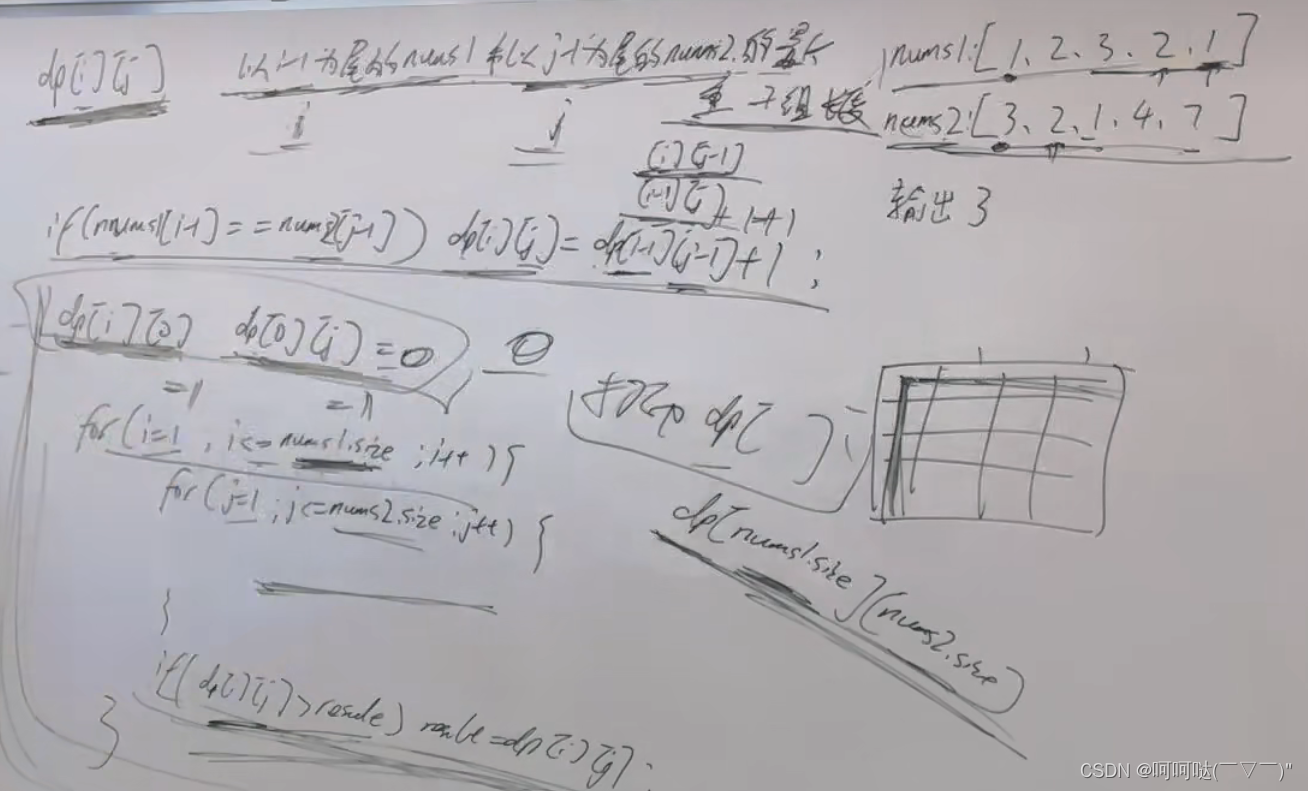 dp[i][j] 以i-1为尾的nums1和以j-1为尾的nums2.的最长
重复子组长度
i j
nums1:[1、2、3、2、1]
nums2:[3、2、1、4、7]
输出3
[i][j-1]
[i-1][j]+1+1
if(nums1[i-1]==nums2[j-1]) dp[i][j]=dp[i-1][j-1]+1;
dp[i][0] dp[0][j]=0 0
=1 =1
for(i=1, i<=nums1.size;i++){
for(j=1;j<=nums2.size;j++){
}
dp[ ]
dp[nums1.size][nums2.size]
if(dp[i][j]>result) result=dp[i][j];
}
CSDN @呵呵哒(￣▽￣)"